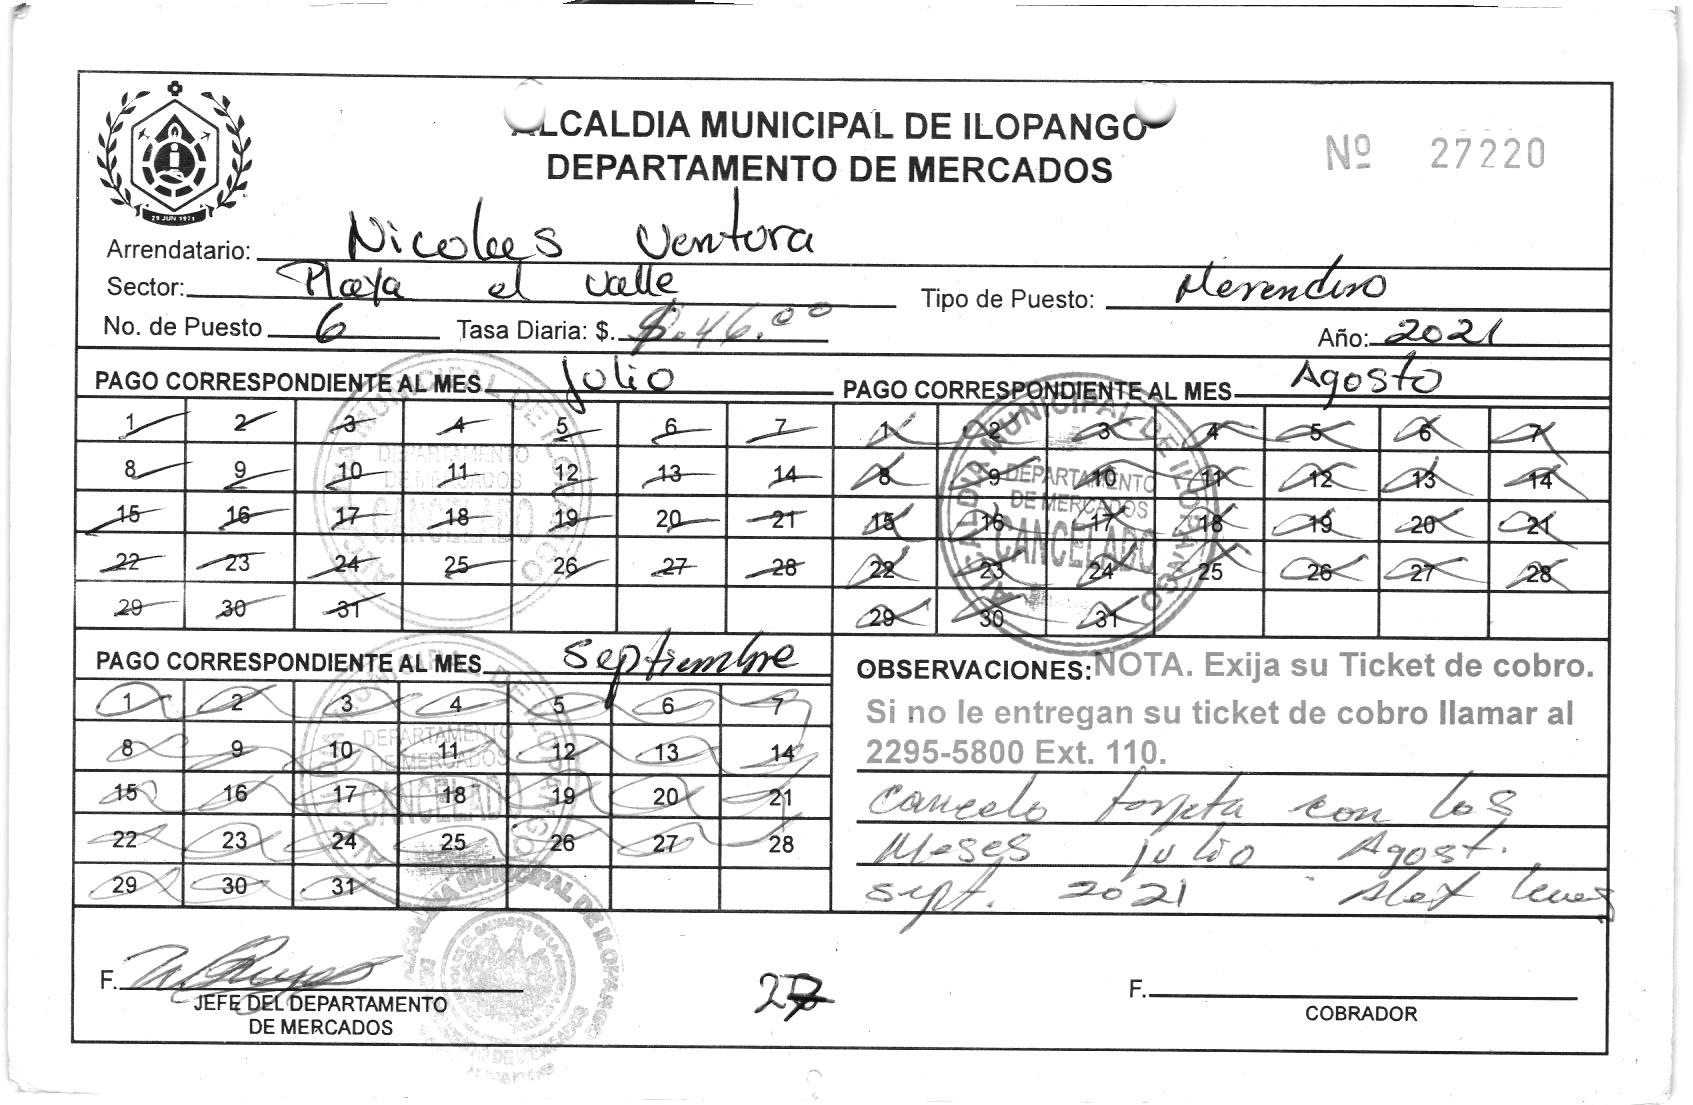 ALCALDIA MUNICIPAL DE ILOPANGO
DEPARTAMENTO DE MERCADOS
Nº 27220
29 JUN 1971
Arrendatario: Nicolas Ventura
Sector: Playa el Valle
Tipo de Puesto: Merendero
No. de Puesto 6 Tasa Diaria: $. $.46.00
Año: 2021
PAGO CORRESPONDIENTE AL MES Julio
1 2 3 4 5 6 7
8 9 10 11 12 13 14
15 16 17 18 19 20 21
22 23 24 25 26 27 28
29 30 31
ALCALDIA MUNICIPAL DE ILOPANGO
DEPARTAMENTO
DE MERCADOS
CANCELADO
PAGO CORRESPONDIENTE AL MES Agosto
1 2 3 4 5 6 7
8 9 10 11 12 13 14
15 16 17 18 19 20 21
22 23 24 25 26 27 28
29 30 31
ALCALDIA MUNICIPAL DE ILOPANGO
DEPARTAMENTO
DE MERCADOS
CANCELADO
PAGO CORRESPONDIENTE AL MES Septiembre
1 2 3 4 5 6 7
8 9 10 11 12 13 14
15 16 17 18 19 20 21
22 23 24 25 26 27 28
29 30 31
ALCALDIA MUNICIPAL DE ILOPANGO
DEPARTAMENTO
DE MERCADOS
CANCELADO
OBSERVACIONES: NOTA. Exija su Ticket de cobro.
Si no le entregan su ticket de cobro llamar al
2295-5800 Ext. 110.
cancelo tarjeta con los
Meses julio Agost.
sept. 2021 Alex
F.
JEFE DEL DEPARTAMENTO
DE MERCADOS
ALCALDIA MUNICIPAL DE ILOPANGO
F.
COBRADOR